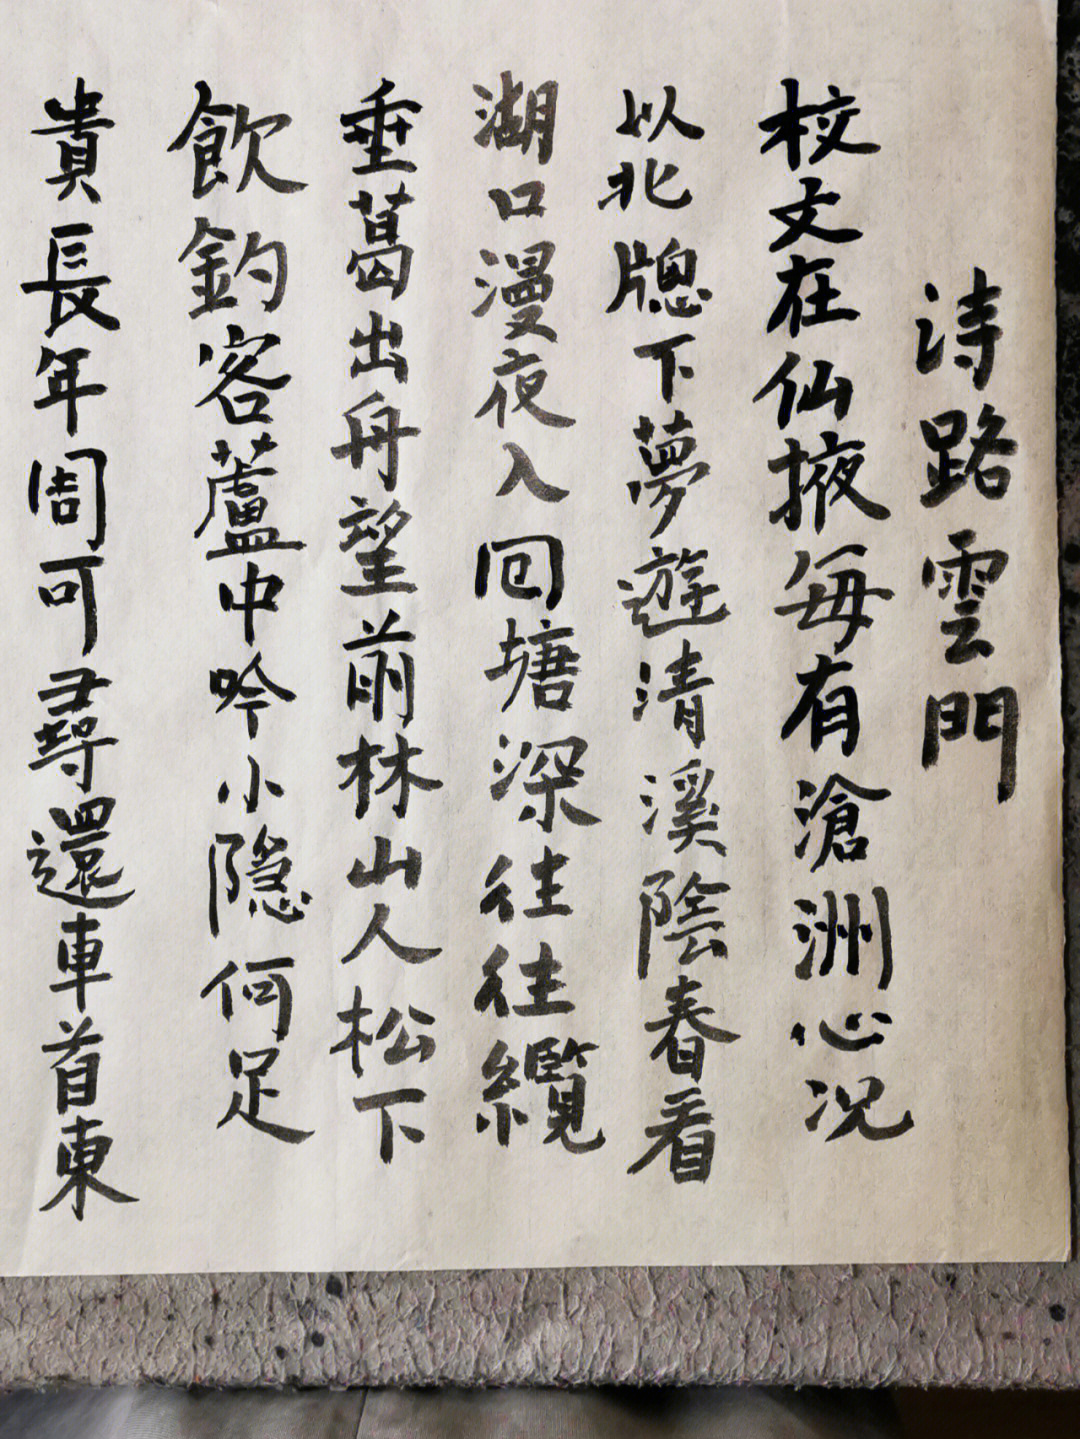 詩路雲門
校文在仙掖每有滄洲心况
以北牕下夢遊清溪陰春看
湖口漫夜入回塘深往往纜
垂葛出舟望前林山人松下
飲釣客蘆中吟小隱何足
貴長年固可尋還車首東